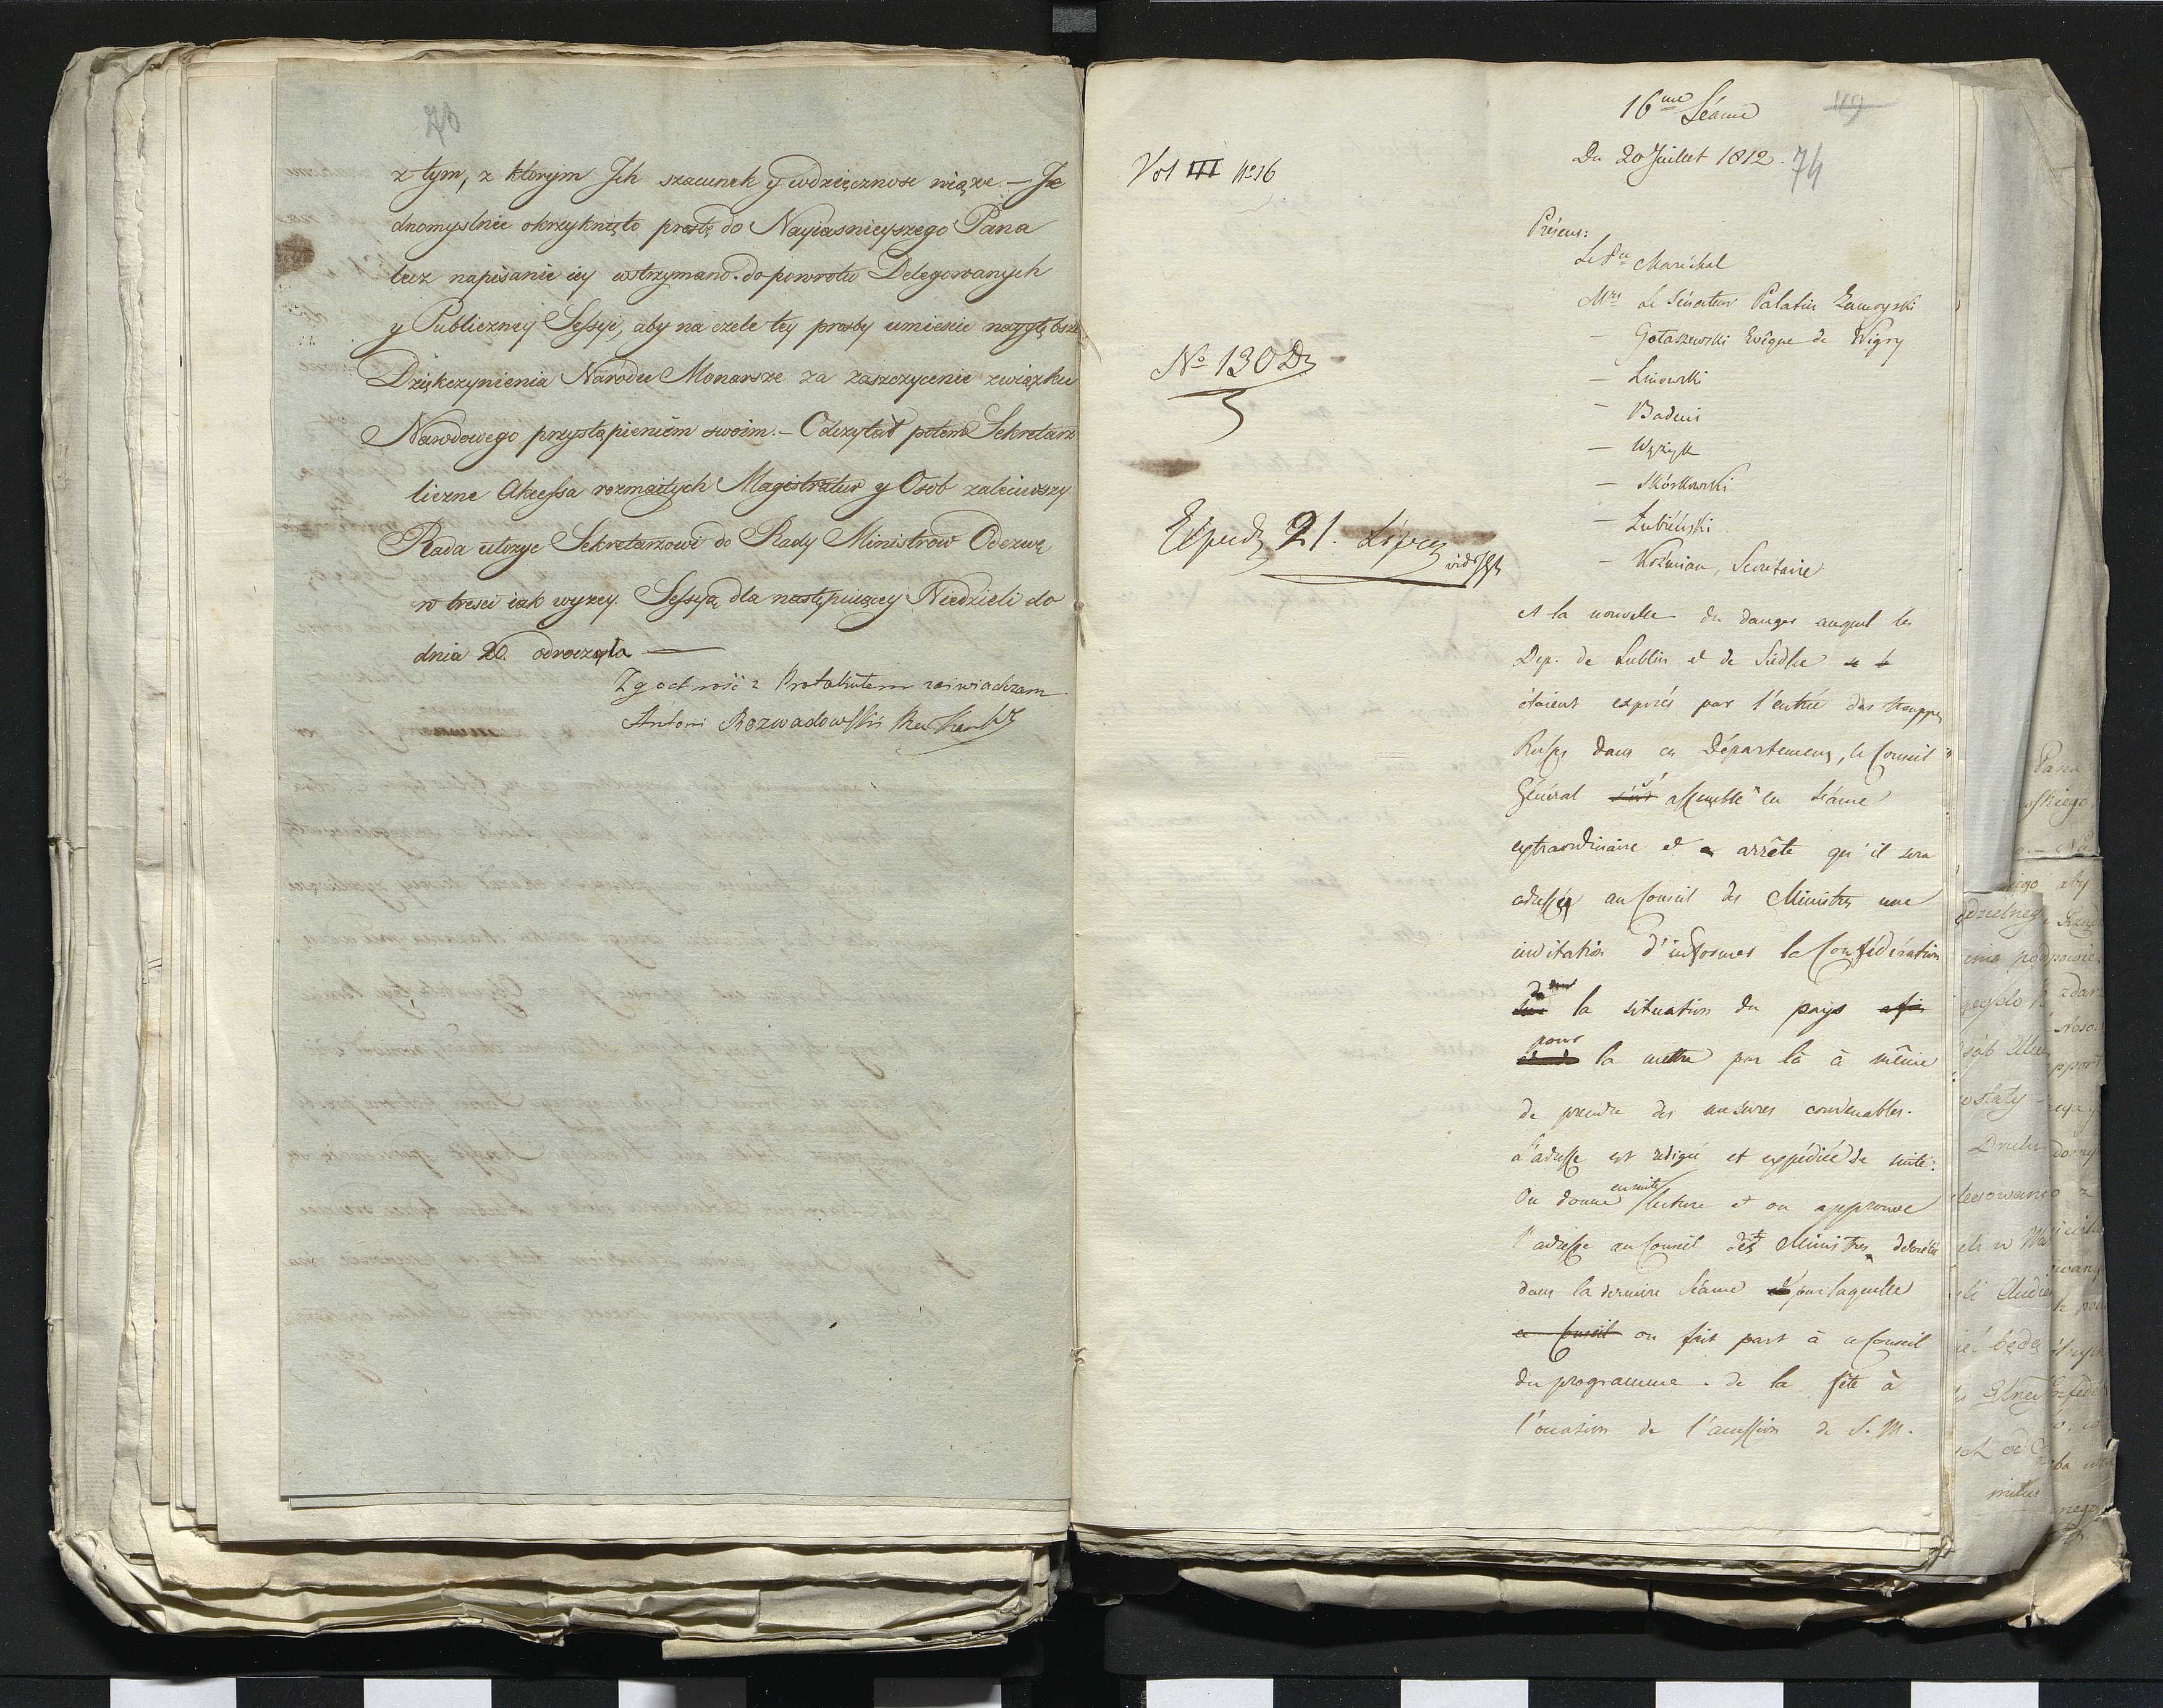 z tym, z ktorym Ich szacunek y wdzięcznosc wiąże. — Je
dnomyslnie okrzyknięto prośbę do Nayiasnieyszego Pana
lecz napisanie iey wstrzymano do powrotu Delegowanych
y Publiczney Sessyi, aby na czele tey prosby umiescic naygłębsze
Dziękczynienia Narodu Monarsze za zaszczycenie związku
Narodowego przystąpieniem swoim. — Odczytał potem Sekretarz
liczne Akcessa rozmaitych Magistratur y Osob zaleciwszy
Rada ułożyc Sekretarzowi do Rady Ministrow Odezwę
w tresci iak wyzey. Sessyą dla następuiącey Niedzieli do
dnia 20. odroczyła —
Zgodność z Protokułem zaswiadczam
Antoni Rozwadowski
16me Séance
Du 20 Juillet 1812.
74
Vol III No 16
No 130 D
21. Lipca
Présens:
Le Maréchal
Mrs Le Sénateur Palatin Zamoyski
— Gołaszewski Evêque de Wigry
— Linowski
— Badeni
— Wężyk
— Skórkowski
— Łubieński
— Koźmian, Secretaire
A la nouvelle du danger auquel les
Dep. de Lublin et de Siedlce
étaient exposés par l'entrée des trouppes
Russes dans ces Départemens, le Conseil
Général s'est assemblé en Séance
extraordinaire et arrête qu'il sera
adressé au Conseil des Ministres une
invitation d'informer la Confédération
de la situation du pays afin
pour la mettre par là à même
de prendre des mesures convenables.
L'adresse est redigée et expédiée de suite.
On donne ensuite lecture et on approuve
l'adresse au Conseil des Ministres décrétée
dans la dernière Séance par laquelle
ce Conseil on fait part à ce Conseil
du programme de la fête à
l'occasion de l'accession de S. M.